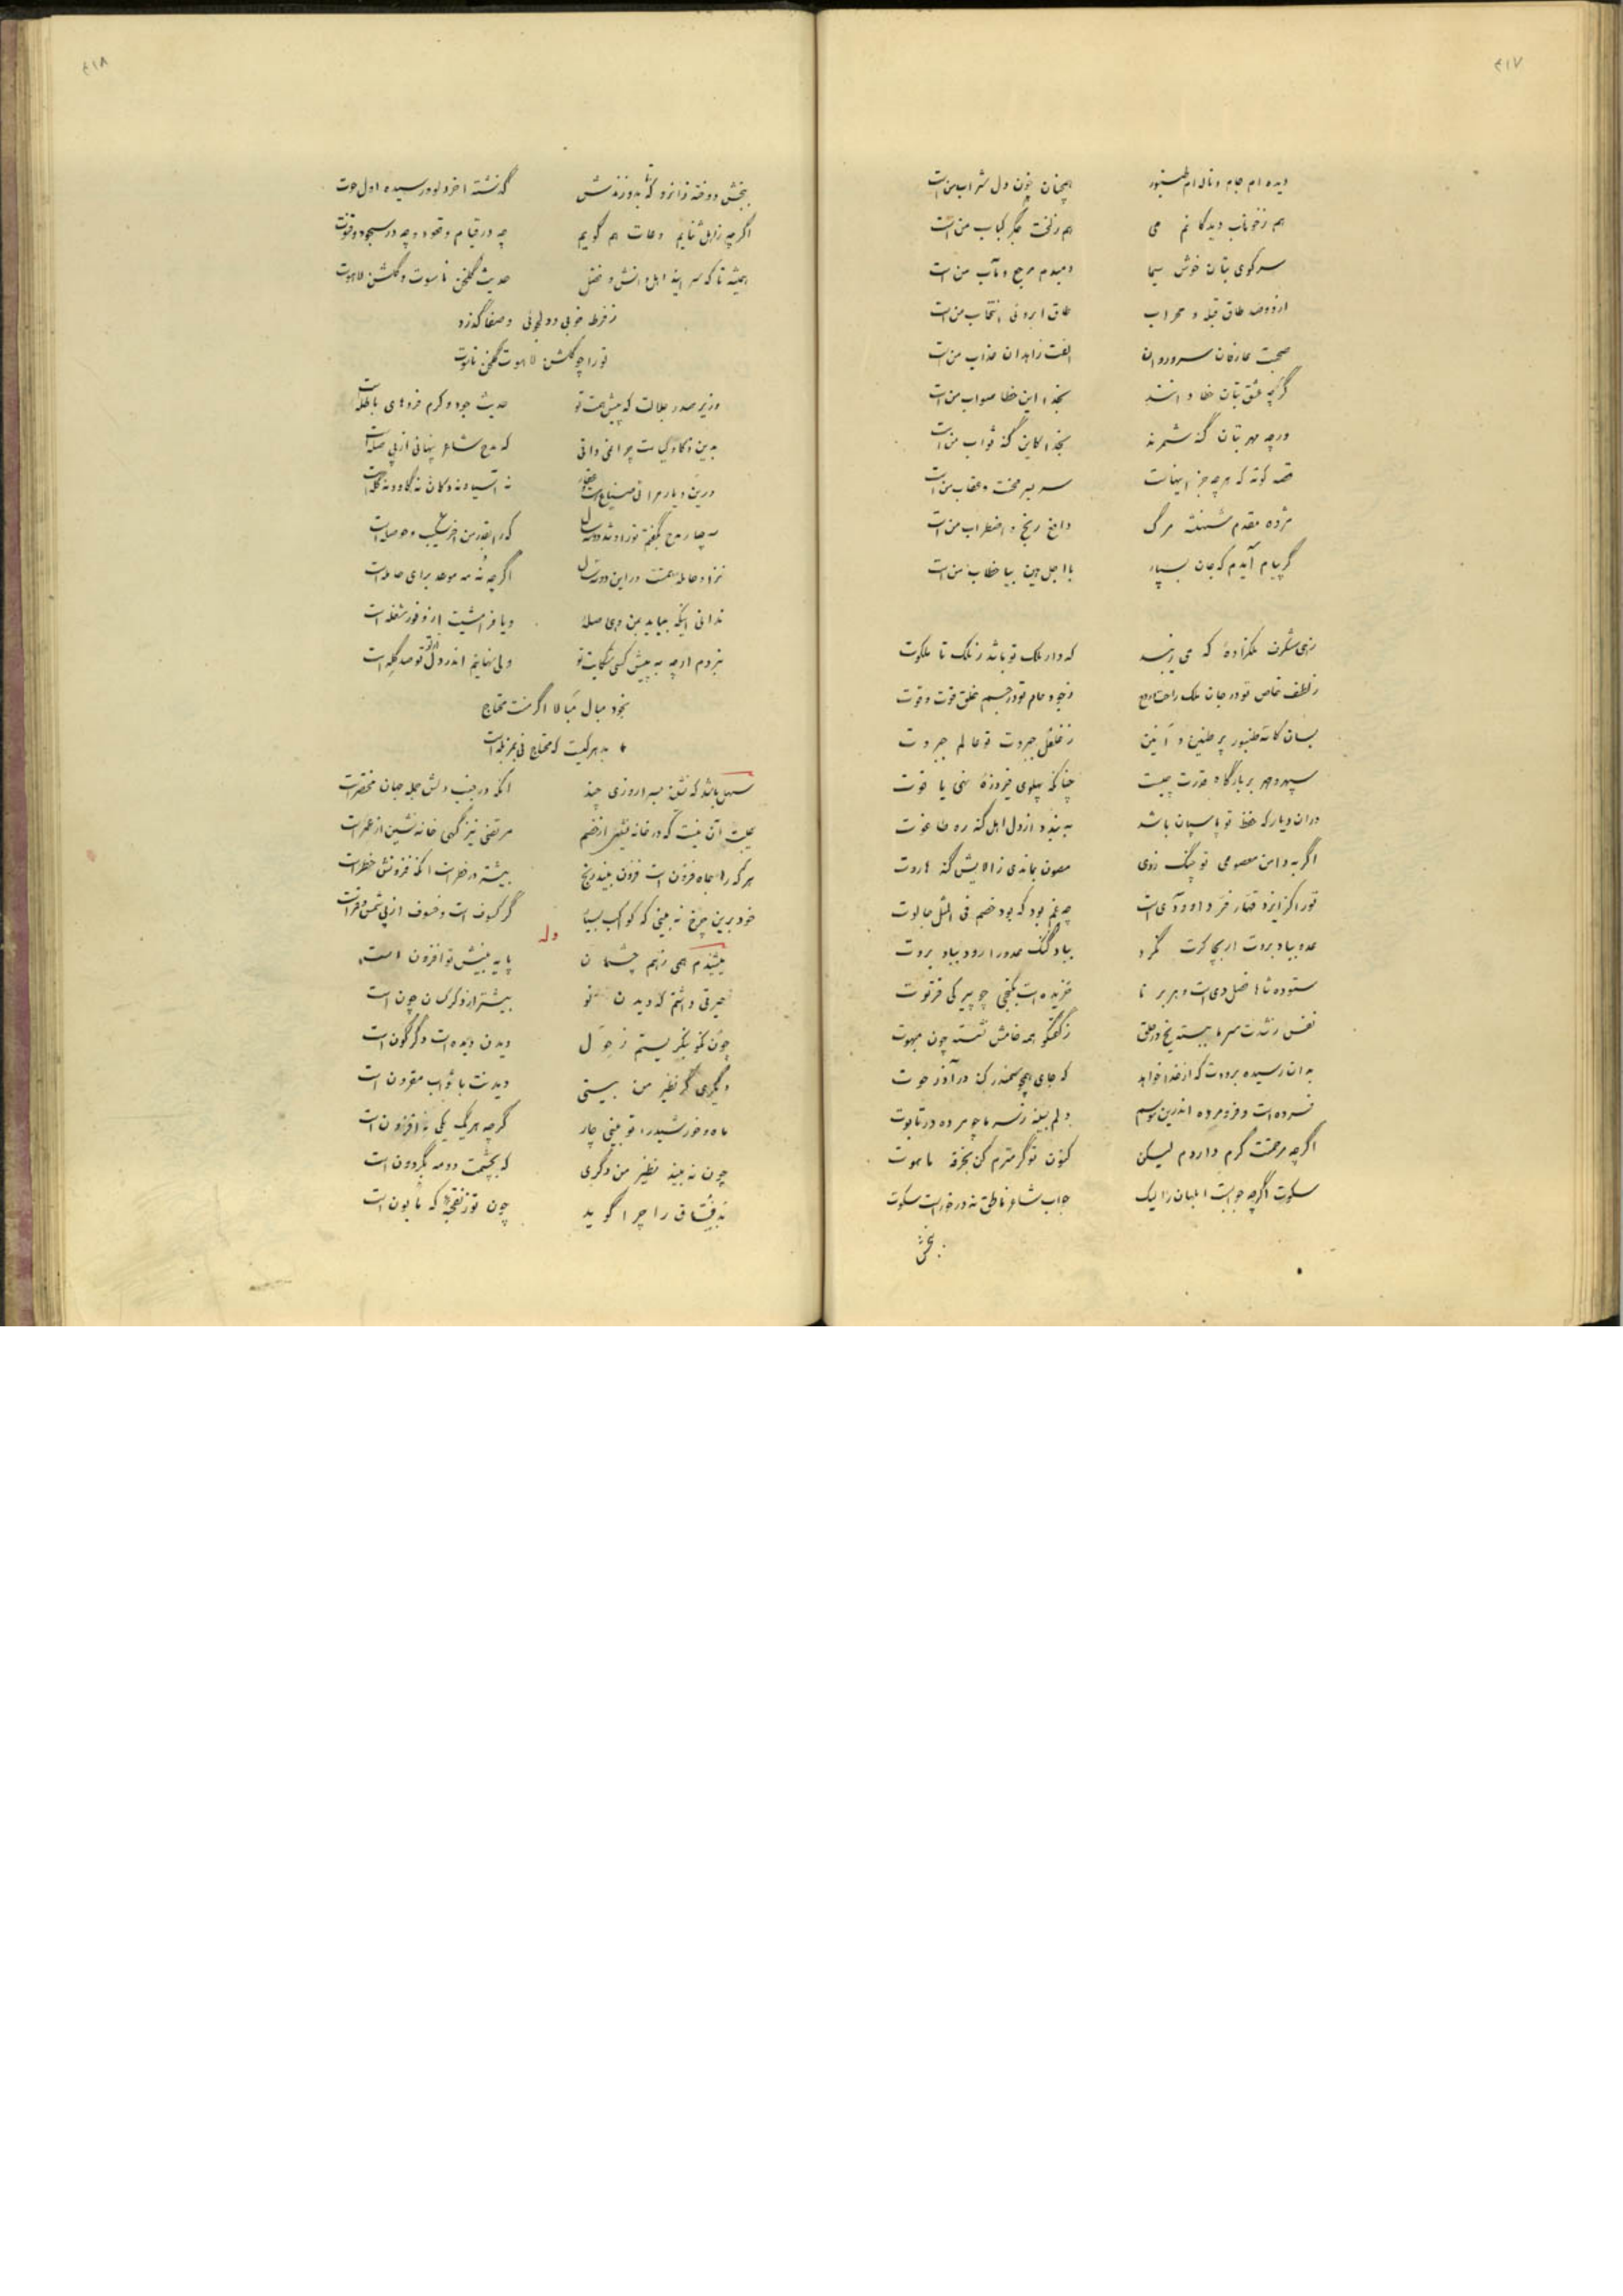 ۴۱۷
دیده ام جام و ناله ام طنبور همچنان خون دل شراب من است
هم ز خوناب دیدگانم می هم ز لخت جگر کباب من است
سر کوی بتان خوش سیما دمبدم مرجع و مآب من است
طاق قبله و محراب طاق ابروئی انتخاب من است
صحبت عارفان سرو روان الفت زاهدان عذاب من است
گرچه عشق بتان خطا دانند بخدا این خطا صواب من است
ورچه مهر بتان گنه شمرند بخدا کاین گنه ثواب من است
قصه کوته که هرچه جز اینهاست سربسر محنت و عقاب من است
مژده مقدم شهنشه مرگ دافع رنج و اضطراب من است
گر پیام آیدم که جان بسپار با اجل هین بیا خطاب من است
زهی شگرف ملکزاده که می زیبد که دار ملک تو باشد ز ملک تا ملکوت
ز لطف خاص تو در جان ملک راحت و روح ز جود عام تو در جسم خلق قوت و قوت
بسان کاسه طنبور پر طنین و آنین ز غلغل جبروت تو عالم جبروت
سپهر و مهر بر بارگاه قدرت چیست چنانکه پهلوی فیروزهٔ نهی یاقوت
دران دیار که حفظ تو پاسبان باشد به بندد از دل اهل گنه ره طاغوت
اگر به دامن معصومی تو چنگ زدی مصون بماندی ز الایش گنه هاروت
تو را کز ایزد قهار فر داودی است چه غم بود که بود خصم فی المثل جالوت
عدو بباد بروت ار بجا کرت نگرد بباد گنگ عدو را رود بباد بروت
ستوده شاها فصل دی است و خزیده است بکنجی چو پیرکی فرتوت
نفس ز شدت سرما ببسته یخ در حلق ز گفتگو همه خامش نشسته چون مبهوت
به ان رسیده برودت که از خدا خواهد که جای همچو سمندر کند در آذر حوت
فسرده است و فرومرده اندرین موسم دلم بسینه ز سرما چو مرده در تابوت
اگرچه مرحمتت گرم داردم لیکن کنون تو گرمترم کن بخرقه ماهوت
سکوت اگرچه جوابست ابلهان را لیک جواب شاعر ناطق نه در خور است سکوت
بخش
۴۱۸
بخش دوخته زانرو که تا بدوزندش گذشته اخر دلو و رسیده اول حوت
اگرچه ز اهل ثنایم دعات هم گویم چه در قیام و قعود و چه در سجود و قنوت
همیشه تا که سرایند اهل دانش و فضل حدیث گلخن ناسوت و گلشن لاهوت
ز فرط خوبی و دلجوئی و صفا گذرد
تو را چو گلشن لاهوت گلخن ناسوت
وزیر صدر جلالت که پیش همت تو حدیث جود و کرم های باطله است
بدین ذکا و کیاست چرا نمی دانی که مدح شاعر پنهانی از پی صله است
درین دیار مرا نی ضیاع است و عقار نه آسیا و نه دکان نه گاو و نه گله است
سه چار مدح بگفتم تو را و شد دو سه سال که را بقدر من اخر شکیب و حوصله است
اگرچه نه مه موعد برای حامله است
ندانی اینکه بباید بمن دهی صله و یا فرامشیت از وفور مشغله است
نبردم ارچه به پیش کسی شکایت تو ولی نهانیم اندر دل از تو صد گله است
بخود مبال مبالا اگر نئی محتاج
به هرکیست که محتاج فی
سهل باشد که نشد میر روزی چند انکه در جنب دلش جمله جهان مختصر است
عیب آن نیست که در خانه نشیند از خصم مرتضی نیز گهی خانه نشین از عمر است
هر که را جاه فزون است فزون بیند رنج بیشتر در خطر است انکه فزونش خطر است
خود برین چرخ نه بینی که کواکب بسیار گر کسوف است و خسوف از پی شمس و قمر است
وله
بیشندم همی ز هم چشمان پایه بینش تو افزون است
حیرتی داشتم که دیدن تو بیشتر از دگرکسان چون است
چون نکو بنگریستم ز حول دیدن دیده ات دگرگون است
دیگری گر نظیر من بیستی دیدنت با ثواب مقرون است
ماه و خورشید را تو بینی چار گرچه هر یک یکی نه افزون است
چون نه بیند نظیر من دگری که بچشمت دو مه بگردون است
را چرا گوید چون تو که مابون است